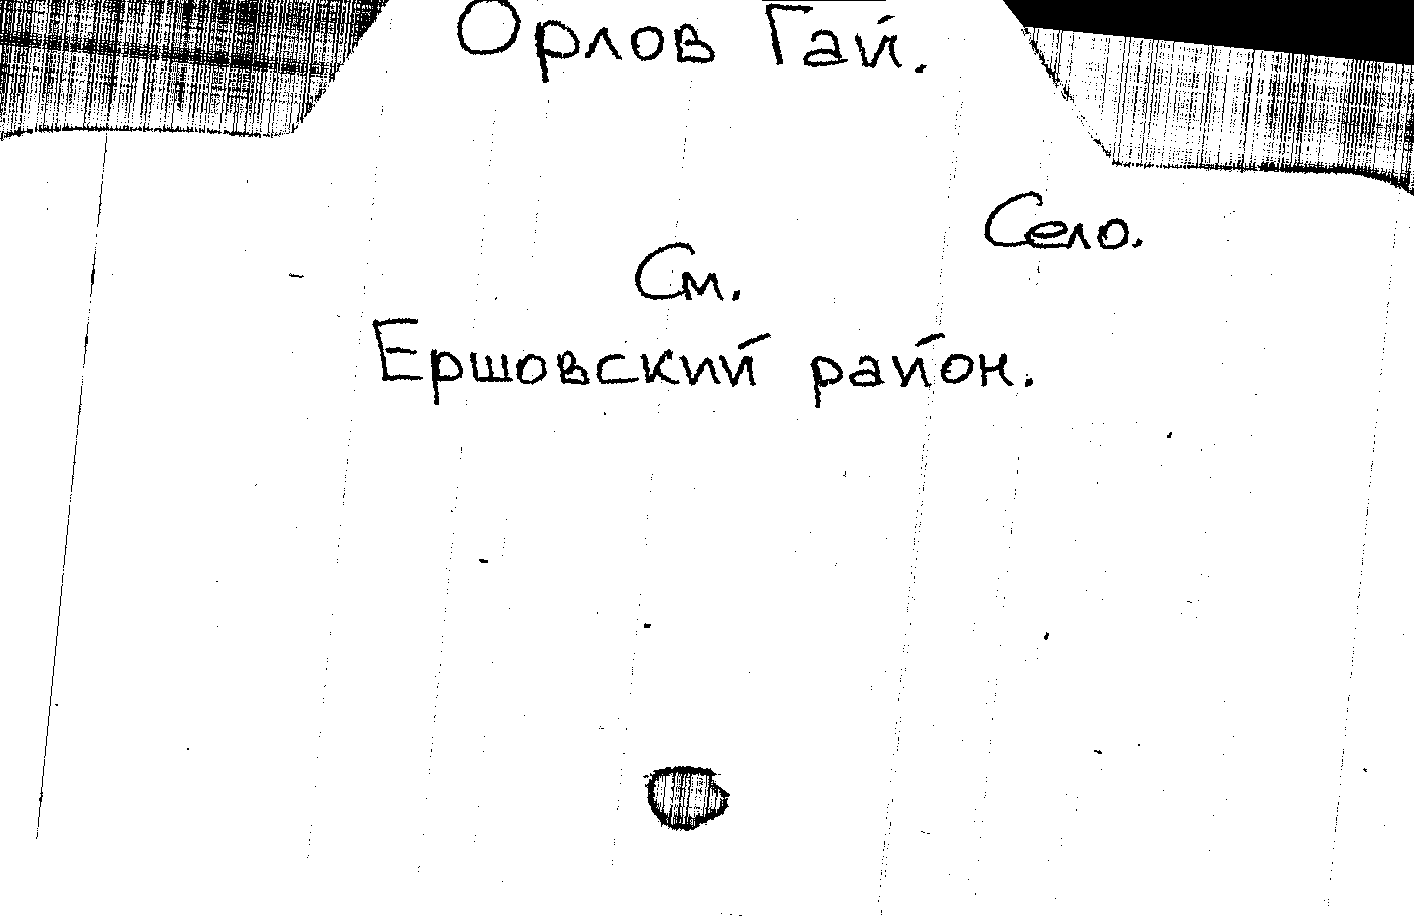 Орлов Гай.
Село.
См.
Ершовский район.